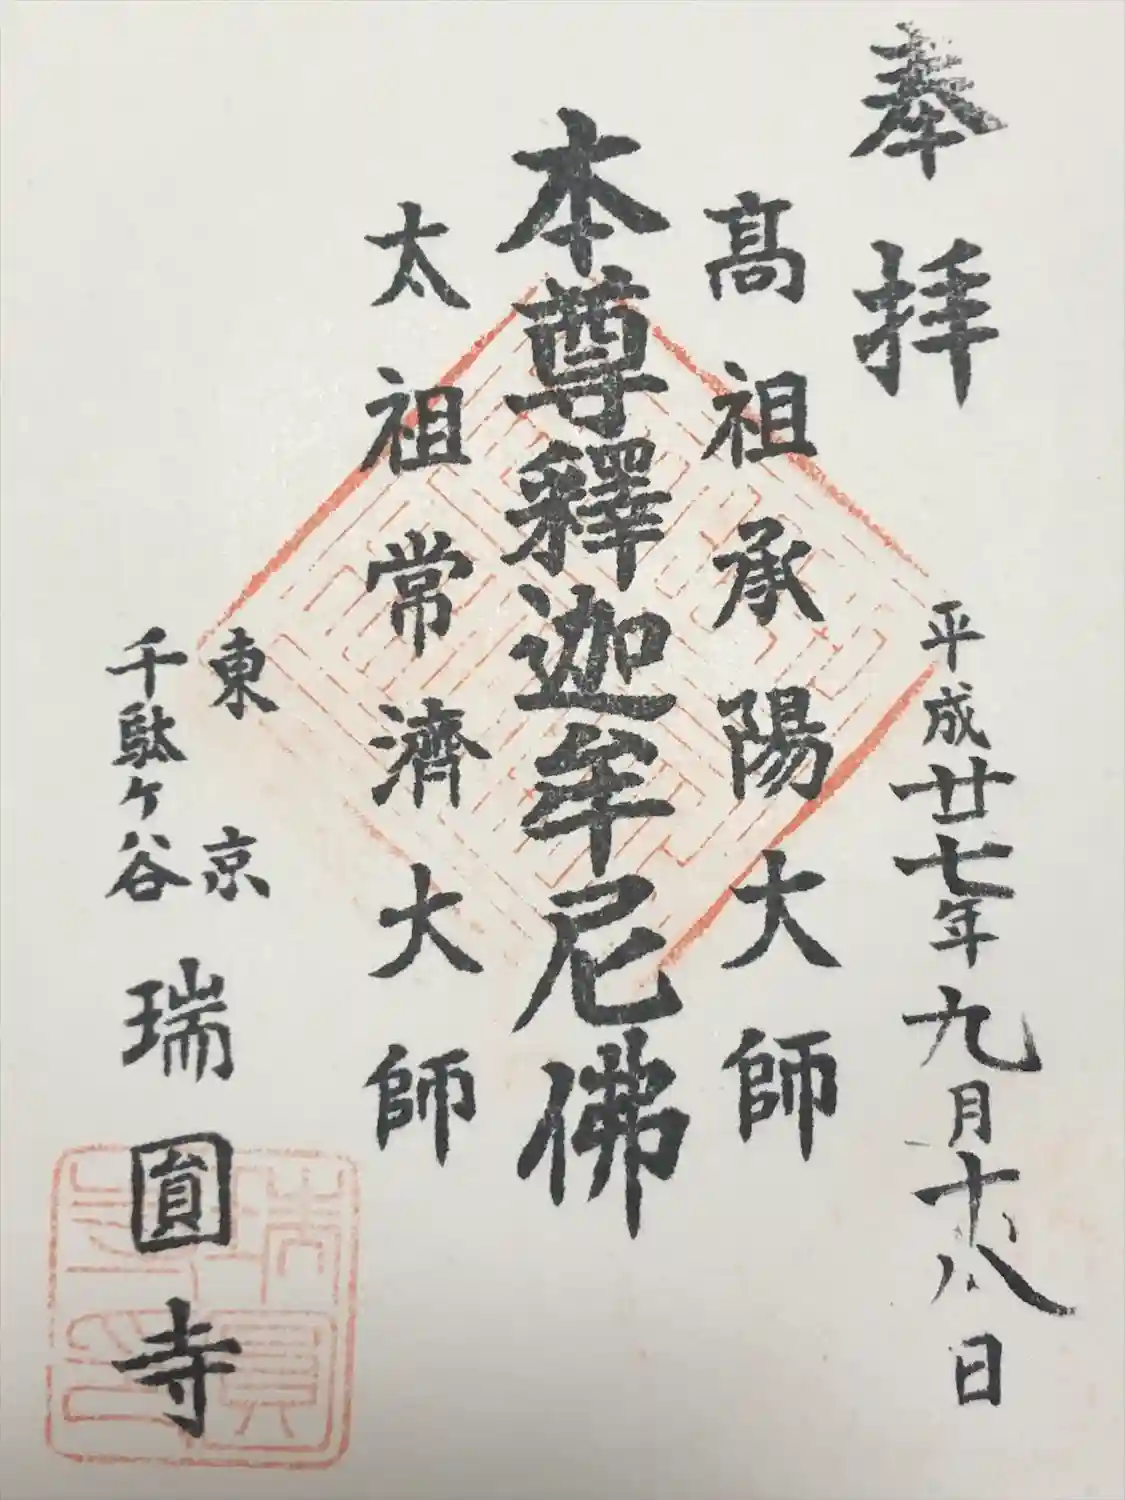 奉拝
平成廿七年九月十八日
髙祖承陽大師
本尊釋迦牟尼佛
太祖常濟大師
東京
千駄ヶ谷
瑞圓寺